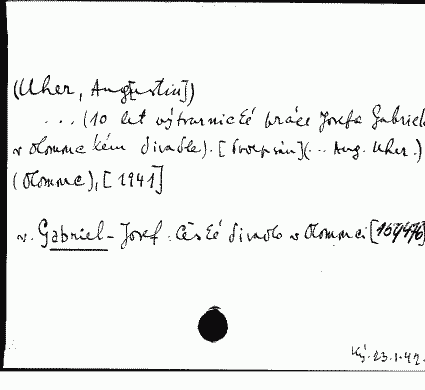 (Uher, Aug[ustin])
... (10 let výtvarnické práce Josefa Gabriel
v Olomouckém divadle). [ ](.. Aug. Uher.)
(Olomouc), [1941]
v. Gabriel - Josef: České divadlo v Olomouci
Ký. 23.1.42.